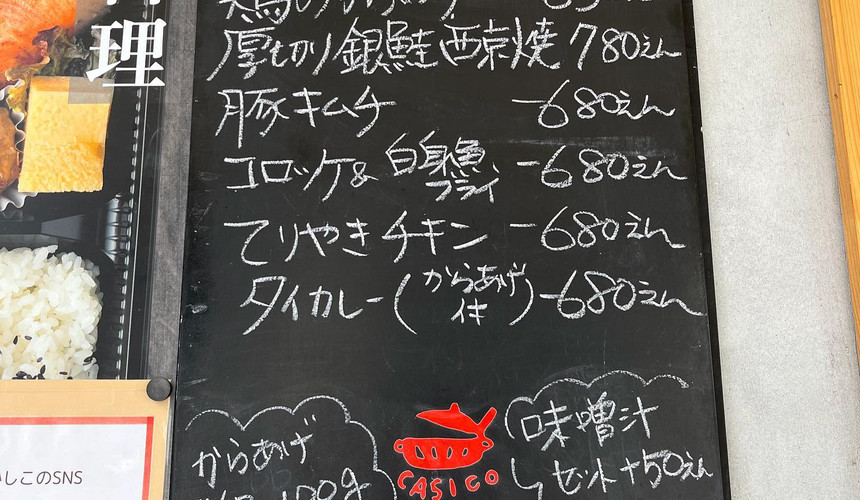 厚切り銀鮭西京焼 780えん
豚キムチ -680えん
コロッケ&白身魚フライ -680えん
てりやきチキン -680えん
タイカレー(からあげ付) -680えん
からあげ
CASICO
味噌汁
セット+50えん
理
しこのSNS